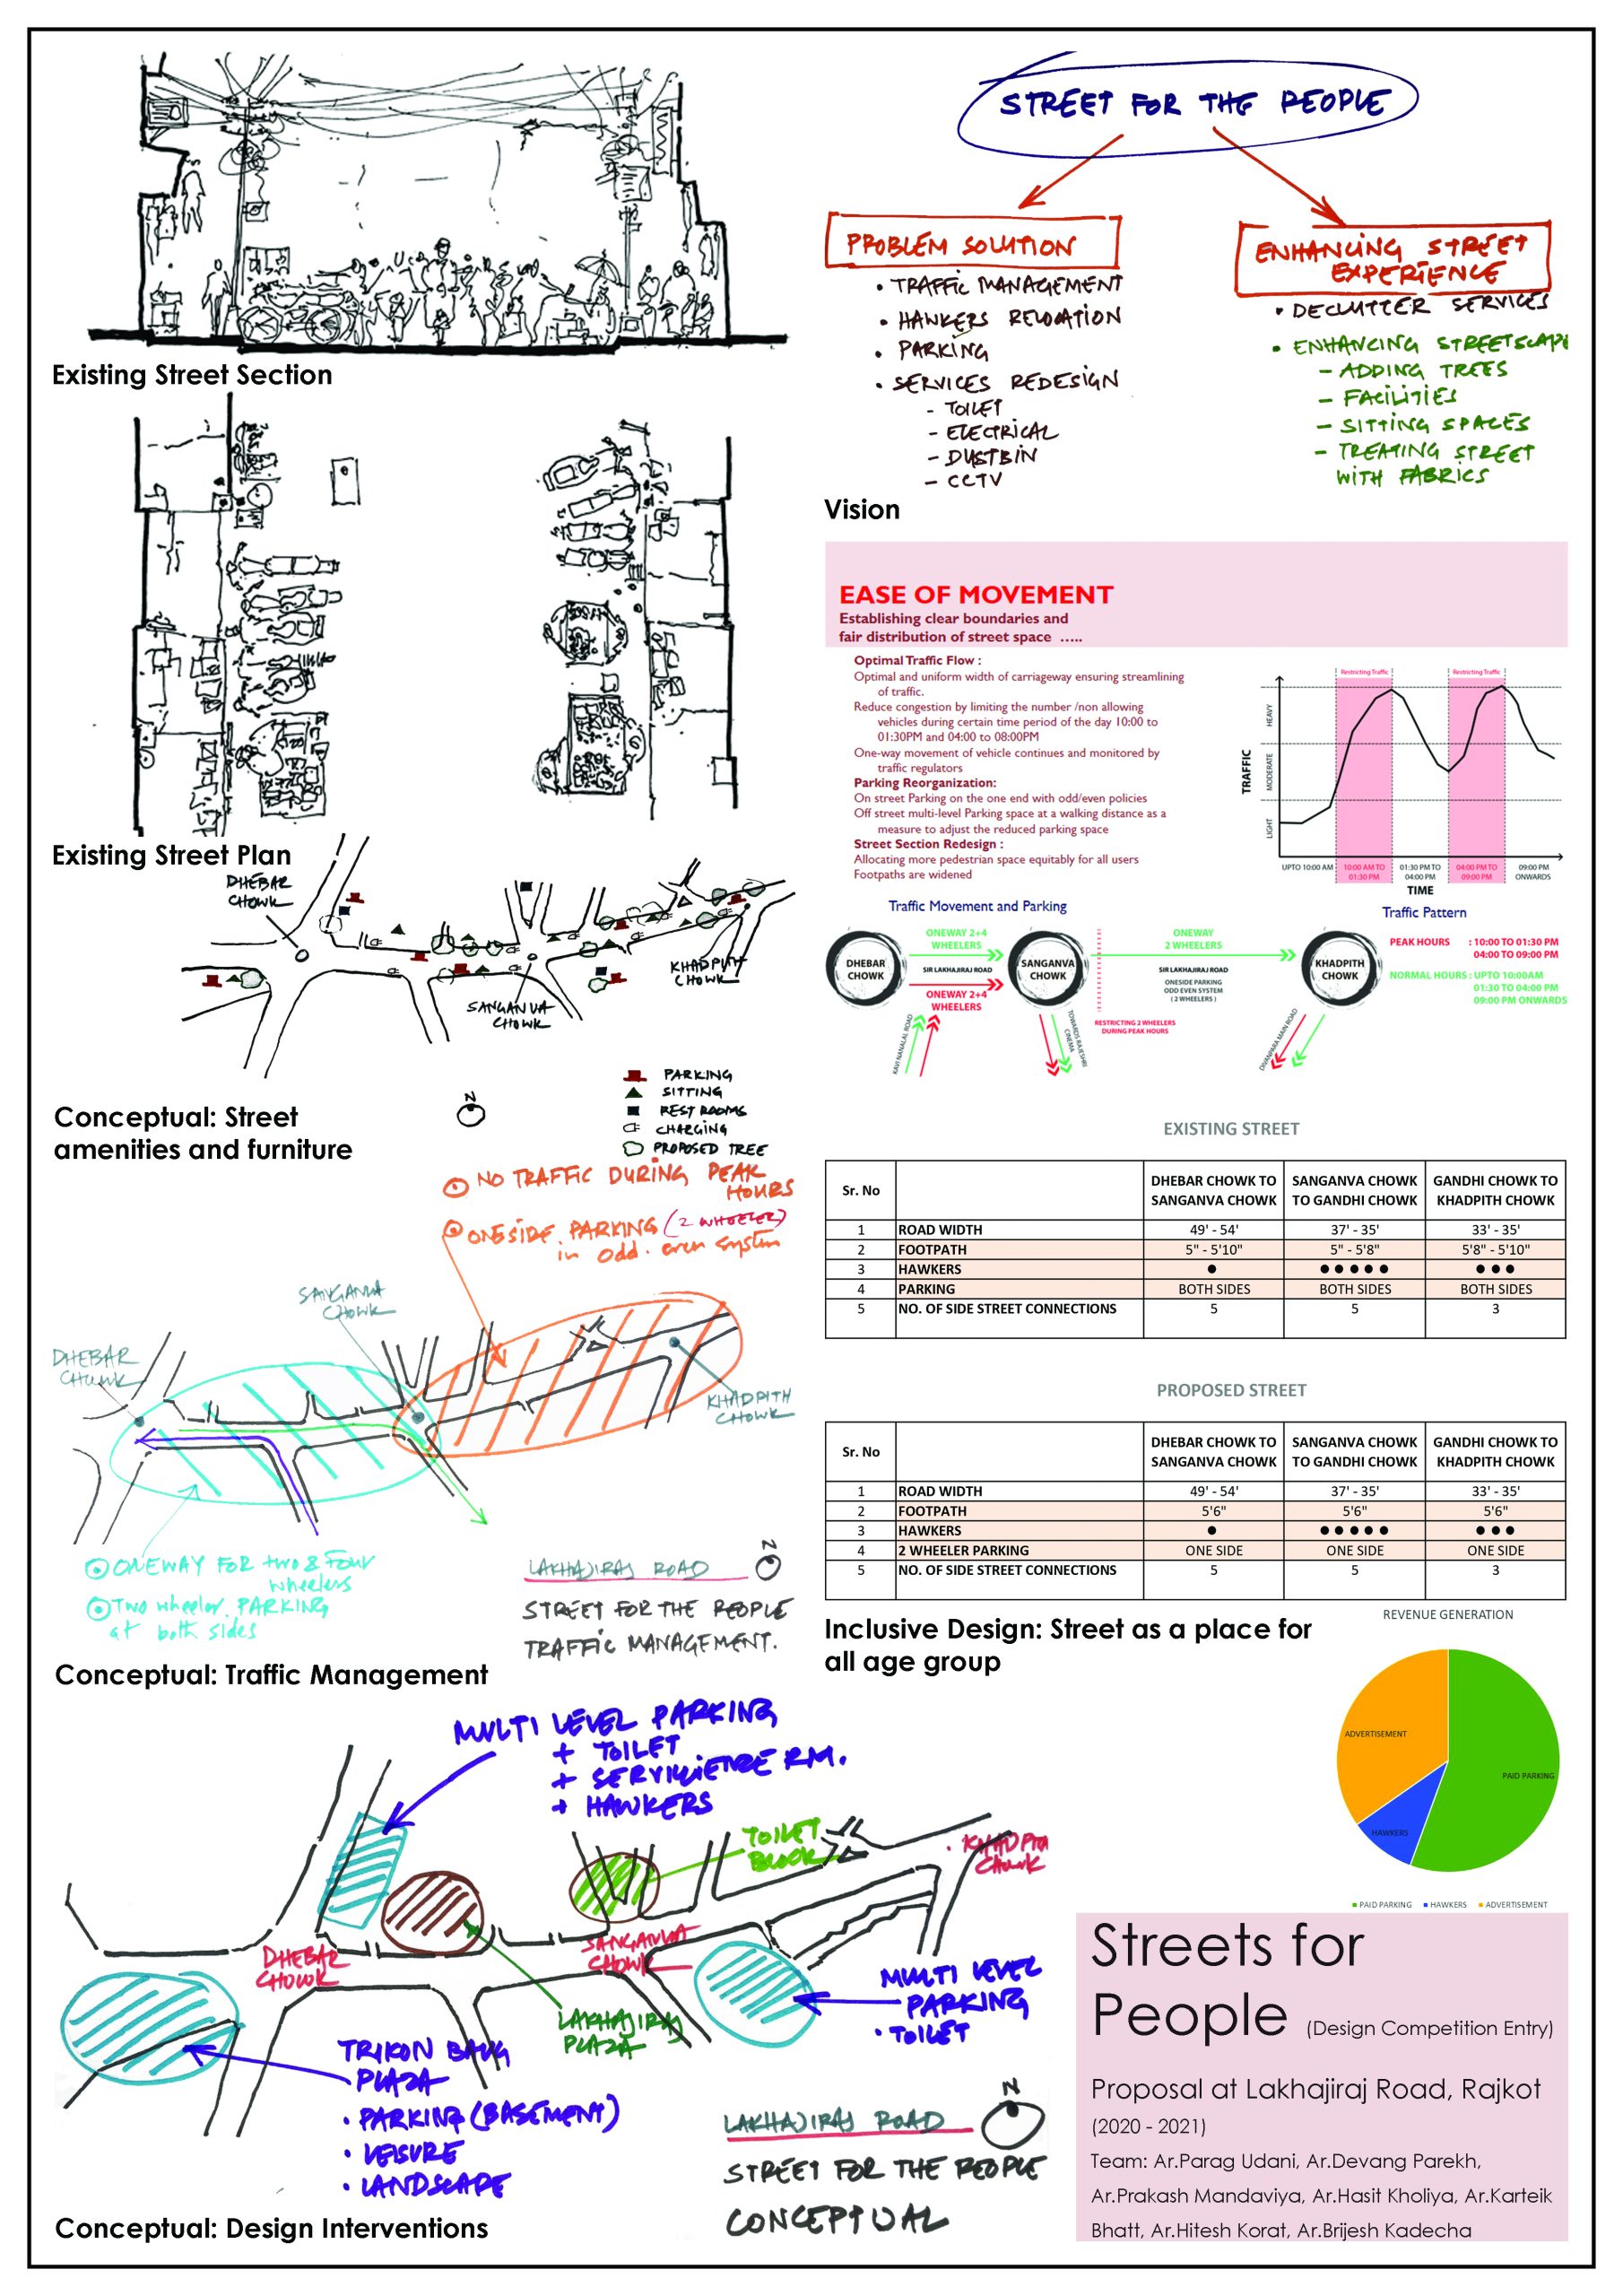 Existing Street Section
STREET FOR THE PEOPLE
PROBLEM SOLUTION
• TRAFFIC MANAGEMENT
• HAWKERS RELOCATION
• PARKING
• SERVICES REDESIGN
- TOILET
- ELECTRICAL
- DUSTBIN
- CCTV
ENHANCING STREET
EXPERIENCE
• DECLUTTER SERVICES
• ENHANCING STREETSCAPE
- ADDING TREES
- FACILITIES
- SITTING SPACES
- TREATING STREET
WITH FABRICS
Vision
Existing Street Plan
DHEBAR
CHOWK
SANGANVA
CHOWK
KHADPITH
CHOWK
N
PARKING
SITTING
REST ROOMS
CHARGING
PROPOSED TREE
Conceptual: Street
amenities and furniture
EASE OF MOVEMENT
Establishing clear boundaries and
fair distribution of street space .....
Optimal Traffic Flow :
Optimal and uniform width of carriageway ensuring streamlining
of traffic.
Reduce congestion by limiting the number /non allowing
vehicles during certain time period of the day 10:00 to
01:30PM and 04:00 to 08:00PM
One-way movement of vehicle continues and monitored by
traffic regulators
Parking Reorganization:
On street Parking on the one end with odd/even policies
Off street multi-level Parking space at a walking distance as a
measure to adjust the reduced parking space
Street Section Redesign :
Allocating more pedestrian space equitably for all users
Footpaths are widened
Restricting Traffic
Restricting Traffic
TRAFFIC
HEAVY
MODERATE
LIGHT
UPTO 10:00 AM
10:00 AM TO
01:30 PM
01:30 PM TO
04:00 PM
04:00 PM TO
09:00 PM
09:00 PM
ONWARDS
TIME
Traffic Movement and Parking
Traffic Pattern
DHEBAR
CHOWK
ONEWAY 2+4
WHEELERS
SIR LAKHAJIRAJ ROAD
ONEWAY 2+4
WHEELERS
KAVI NANALAL ROAD
SANGANVA
CHOWK
TOWARDS RAJESHRI
CINEMA
ONEWAY
2 WHEELERS
SIR LAKHAJIRAJ ROAD
ONESIDE PARKING
ODD EVEN SYSTEM
( 2 WHEELERS )
RESTRICTING 2 WHEELERS
DURING PEAK HOURS
KHADPITH
CHOWK
DIVANPARA MAIN ROAD
PEAK HOURS : 10:00 TO 01:30 PM
04:00 TO 09:00 PM
NORMAL HOURS : UPTO 10:00AM
01:30 TO 04:00 PM
09:00 PM ONWARDS
EXISTING STREET
Sr. No DHEBAR CHOWK TO SANGANVA CHOWK SANGANVA CHOWK TO GANDHI CHOWK GANDHI CHOWK TO KHADPITH CHOWK
1 ROAD WIDTH 49' - 54' 37' - 35' 33' - 35'
2 FOOTPATH 5" - 5'10" 5" - 5'8" 5'8" - 5'10"
3 HAWKERS ● ●●●●● ●●●
4 PARKING BOTH SIDES BOTH SIDES BOTH SIDES
5 NO. OF SIDE STREET CONNECTIONS 5 5 3
PROPOSED STREET
Sr. No DHEBAR CHOWK TO SANGANVA CHOWK SANGANVA CHOWK TO GANDHI CHOWK GANDHI CHOWK TO KHADPITH CHOWK
1 ROAD WIDTH 49' - 54' 37' - 35' 33' - 35'
2 FOOTPATH 5'6" 5'6" 5'6"
3 HAWKERS ● ●●●●● ●●●
4 2 WHEELER PARKING ONE SIDE ONE SIDE ONE SIDE
5 NO. OF SIDE STREET CONNECTIONS 5 5 3
Inclusive Design: Street as a place for
all age group
NO TRAFFIC DURING PEAK
HOURS
ONESIDE PARKING (2 WHEELER)
in odd. even system
SANGANVA
CHOWK
DHEBAR
CHOWK
KHADPITH
CHOWK
ONEWAY FOR two & Four
wheelers
Two wheeler PARKING
at both sides
N
LAKHAJIRAJ ROAD
STREET FOR THE PEOPLE
TRAFFIC MANAGEMENT.
Conceptual: Traffic Management
REVENUE GENERATION
ADVERTISEMENT
PAID PARKING
HAWKERS
PAID PARKING HAWKERS ADVERTISEMENT
MULTI LEVEL PARKING
+ TOILET
RM.
+ HAWKERS
TOILET
BLOCK
KHADPITH
CHOWK
DHEBAR
CHOWK
SANGANVA
CHOWK
LAKHAJIRAJ
PLAZA
MULTI LEVEL
PARKING
• TOILET
TRIKON BAUG
PLAZA
• PARKING (BASEMENT)
• LEISURE
• LANDSCAPE
N
LAKHAJIRAJ ROAD
STREET FOR THE PEOPLE
CONCEPTUAL
Conceptual: Design Interventions
Streets for
People (Design Competition Entry)
Proposal at Lakhajiraj Road, Rajkot
(2020 - 2021)
Team: Ar.Parag Udani, Ar.Devang Parekh,
Ar.Prakash Mandaviya, Ar.Hasit Kholiya, Ar.Karteik
Bhatt, Ar.Hitesh Korat, Ar.Brijesh Kadecha